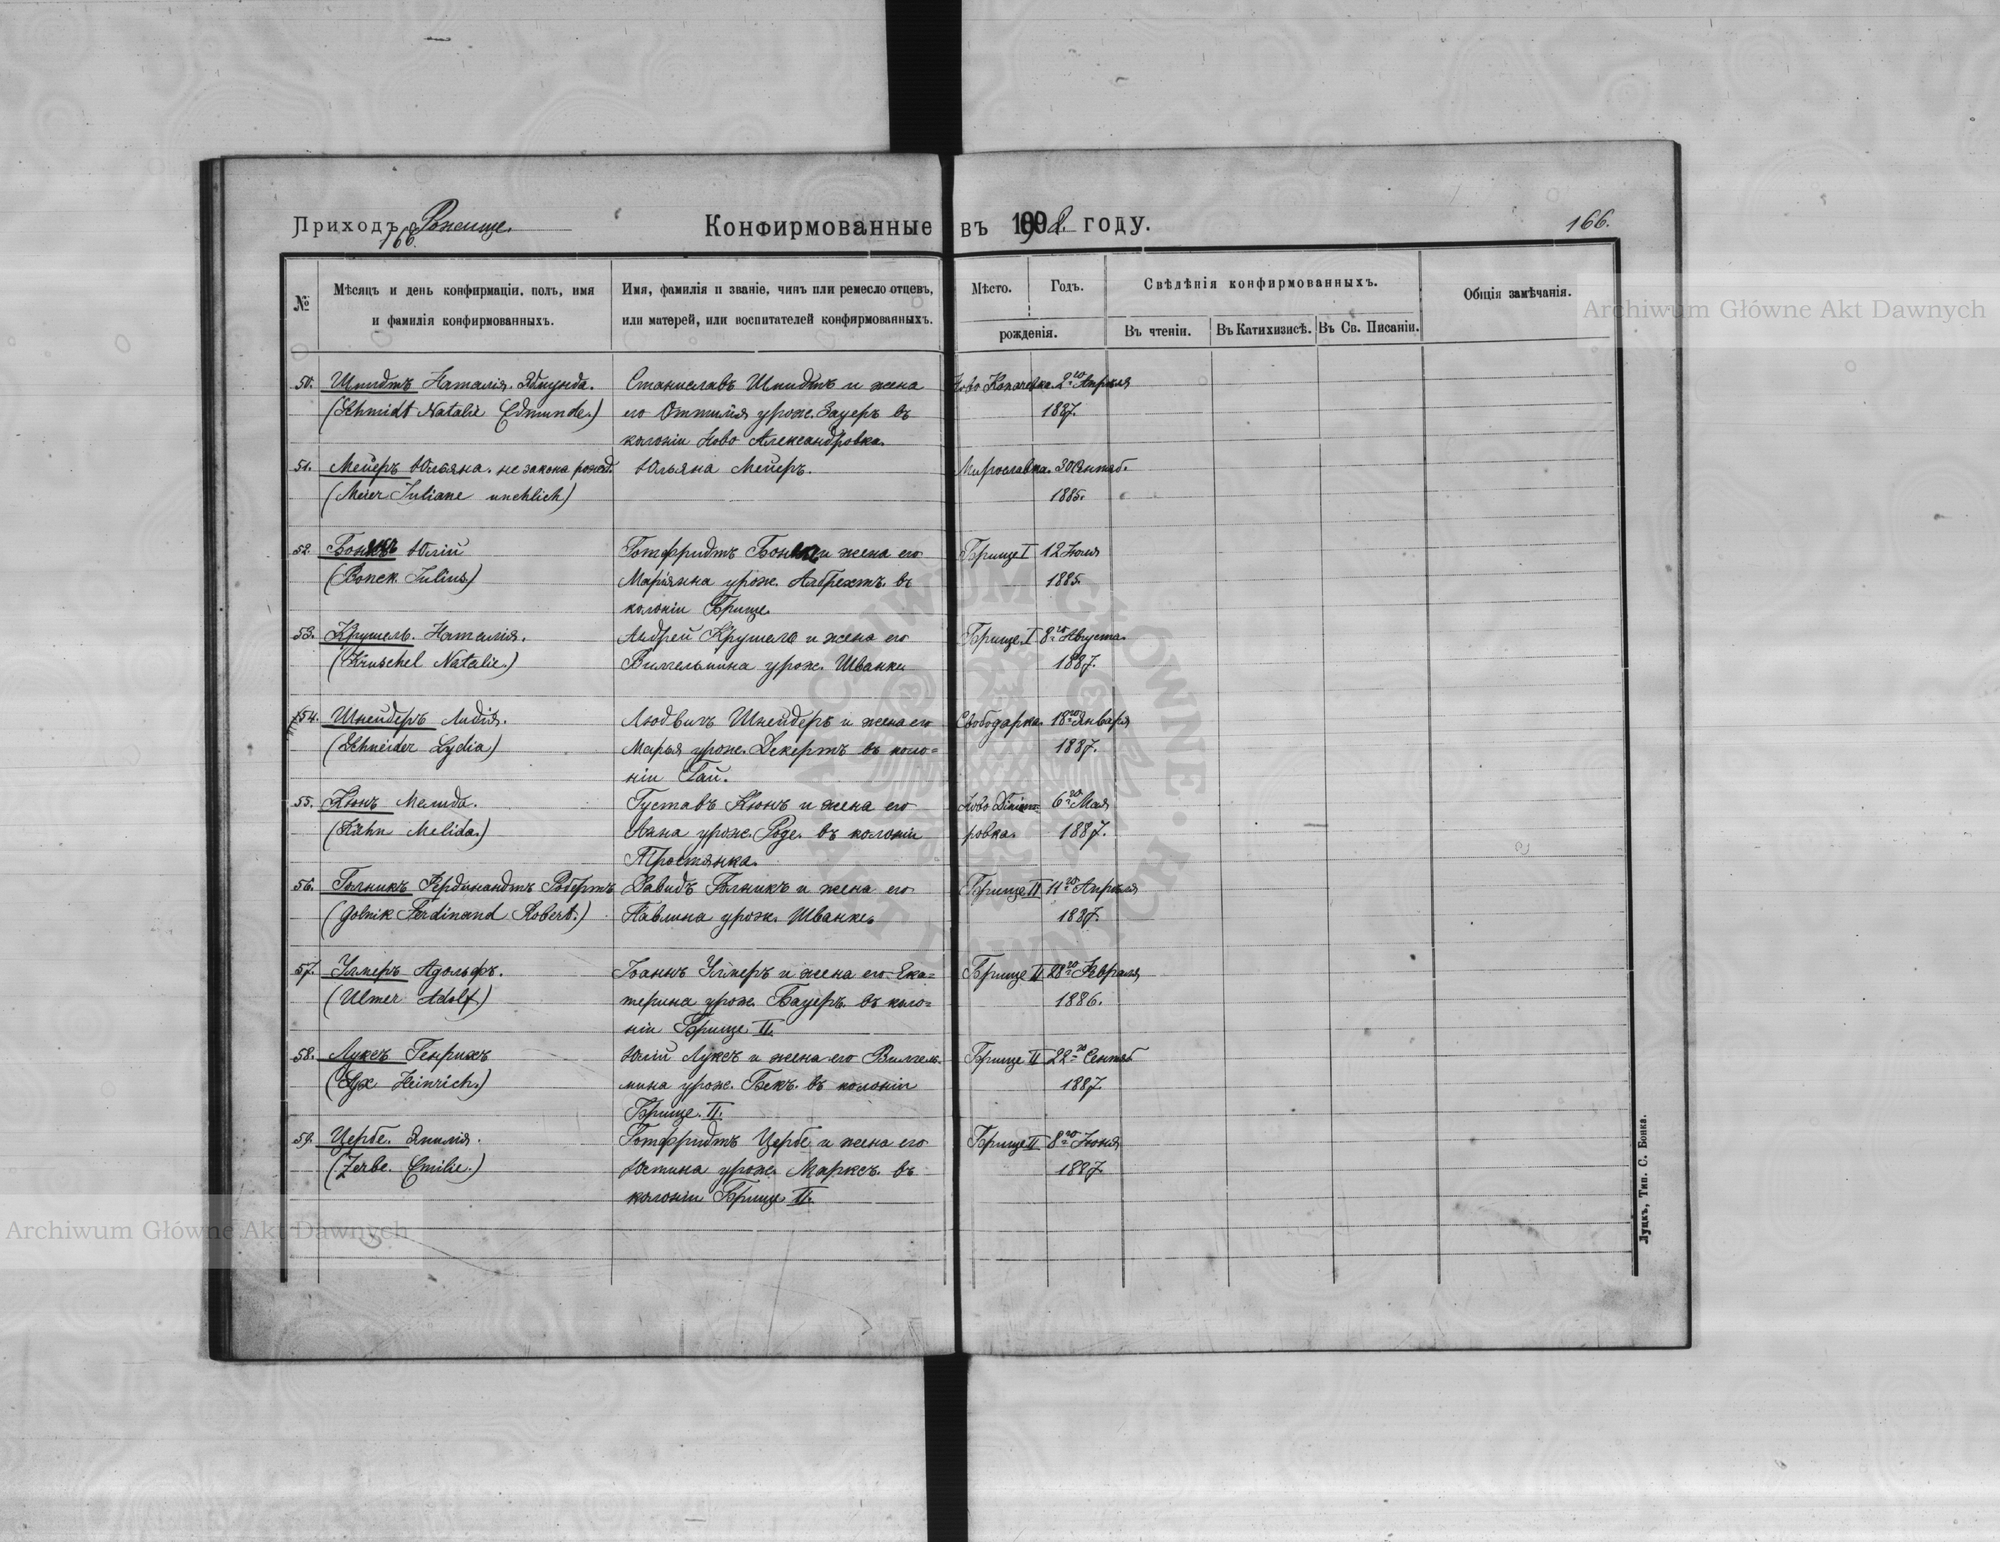 Приходъ Рожище.
166.
Конфирмованные въ 1902 году.
166.
№
Мѣсяцъ и день конфирмаціи, полъ, имя
и фамилія конфирмованныхъ.
Имя, фамилія и званіе, чинъ или ремесло отцевъ,
или матерей, или воспитателей конфирмованныхъ.
Мѣсто.
Годъ.
рожденія.
Свѣдѣнія конфирмованныхъ.
Въ чтеніи.
Въ Катихизисѣ.
Въ Св. Писаніи.
Общія замѣчанія.
50. Шмидтъ Наталія Эдмунда. Станиславъ Шмидтъ и жена Ново Копачевка 2го Апрѣля
(Schmidt Natalie Edmunde.) его Оттилія урож. Зауеръ въ 1887.
колоніи Ново Александровка.
51. Мейеръ Юльяна. не закона рожд. Юльяна Мейеръ. Мирославка. 30 Сентяб.
(Meier Juliane unehlich) 1885.
52. Юлій Готфридтъ и жена его Брище I 12 Іюля
(Bonek Julius) Маріянна урож. Албрехтъ въ 1885.
колоніи Брище.
53. Крушель Наталія. Андрей Крушель и жена его Брище I 8го Августа.
(Kruschel Natalie.) Вильгельмина урож. Шванке 1887.
54. Шнейдеръ Лидія. Людвигъ Шнейдеръ и жена его Свободарка. 18го Января
(Schneider Lydia) Марья урож. Декертъ въ коло= 1887.
ніи Гай.
55. Кюнъ Мелида. Густавъ Кюнъ и жена его Ново 6го Мая
(Kühn Melida.) Анна урож. Роде въ колоніи ровка. 1887.
Тростянка.
56. Гольникъ Фердинандтъ Робертъ Давидъ Гольникъ и жена его Брище II 11го Апрѣля
(Golnik Ferdinand Robert.) Павлина урож. Шванке. 1887.
57. Улмеръ Адольфъ. Іоаннъ Улмеръ и жена его Ека= Брище II 28го Февраля
(Ulmer Adolf) терина урож. Бауеръ въ коло= 1886.
ніи Брище II.
58. Луксъ Генрихъ Юлій Луксъ и жена его Вильгель= Брище II 22го Сентяб
(Heinrich.) мина урож. Бекъ въ колоніи 1887.
Брище II.
59. Цербе Эмилія. Готфридтъ Цербе и жена его Брище II 8го Іюня
(Zerbe Emilie.) Юстина урож. Марксъ въ 1887.
колоніи Брище II.
Луцкъ, Тип. С. Бонка.
Archiwum Główne Akt Dawnych
Archiwum Główne Akt Dawnych
ARCHIWUM GŁÓWNE AKT DAWNYCH